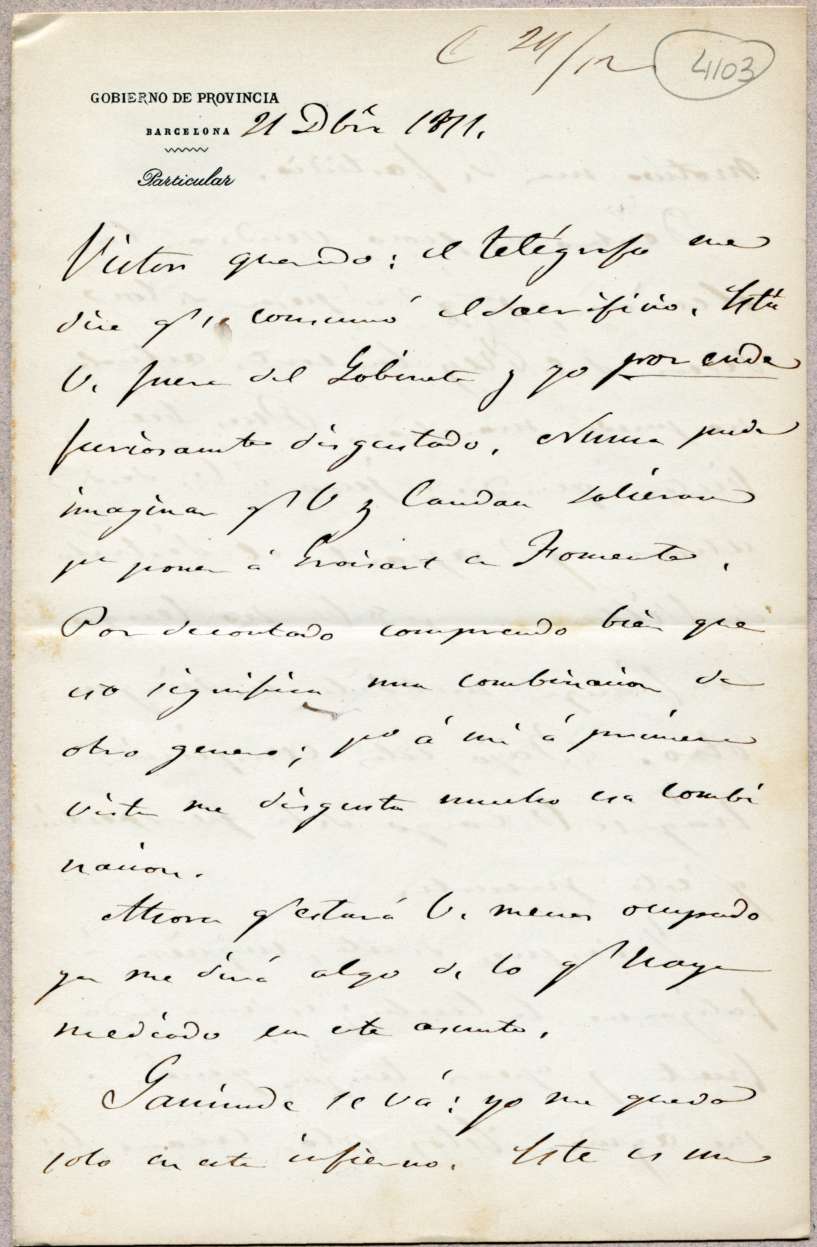 C 24/12
4103
GOBIERNO DE PROVINCIA
BARCELONA
Particular
21 Dbre 1871.
Victor querido: el telégrafo me
dice qe se consumó el sacrificio. Está
V. fuera del Gobinete y yo por ende
furiosamte disgustado. Nunca pude
imaginar qe V y Candau salieran
pa poner á Groizart en Fomento.
Por decontado comprendo bien que
eso significa una combinacion de
otro genero; po á mi á primera
vista me disgusta mucho esa combi
nacion.
Ahora qe estará V. menos ocupado
ya me dirá algo de lo qe haya
mediado en este asunto.
Gaminde se vá: yo me quedo
solo en este infierno. Este es un